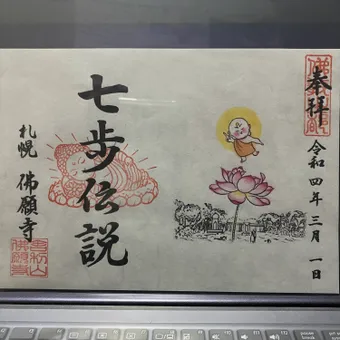 奉拝
令和四年三月一日
七歩伝説
札幌 佛願寺